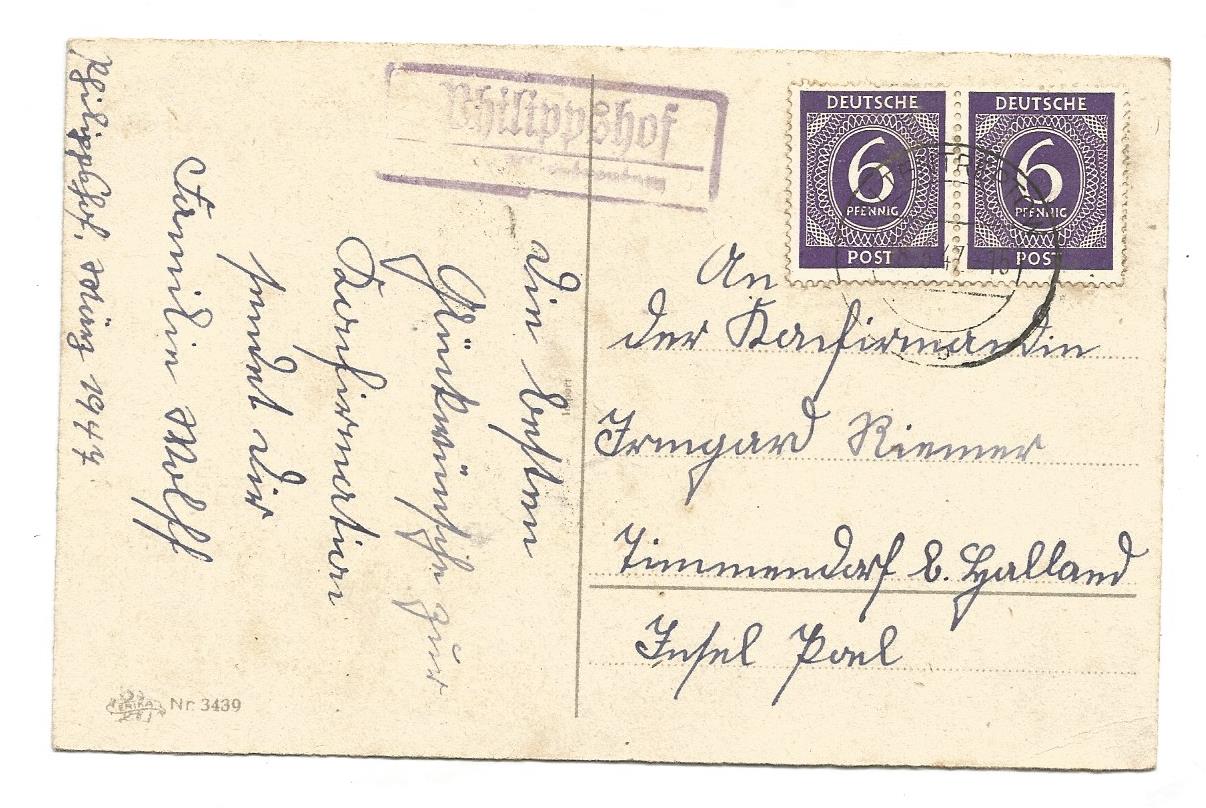 Philippshof
DEUTSCHE
6
PFENNIG
POST
DEUTSCHE
6
PFENNIG
POST
An
der Konfirmandin
Irmgard Riemer
Timmendorf b. Halland
Insel Poel
Philippshof, März 1947
Die besten
Glückwünsche zur
Konfirmation
sendet dir
Familie Wolff
ERIKA
Nr. 3439